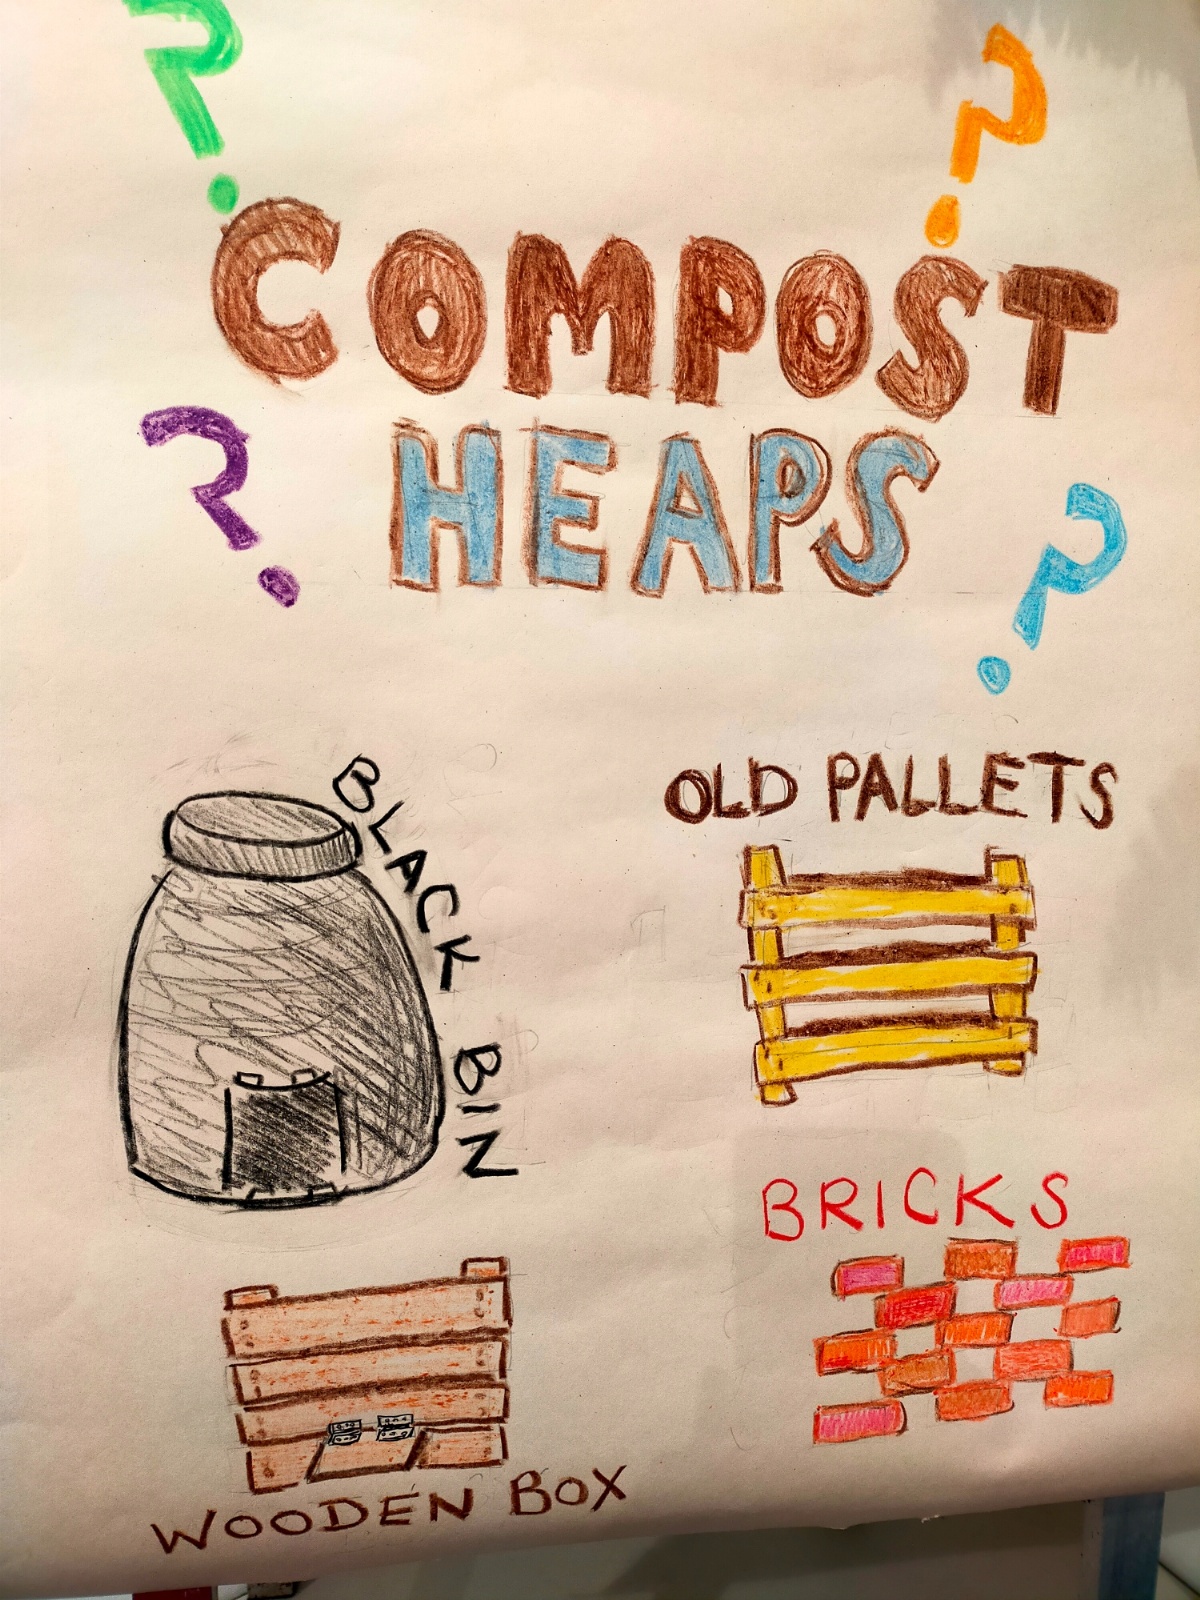 ? ?
COMPOST
? HEAPS ?
BLACK BIN
OLD PALLETS
BRICKS
WOODEN BOX